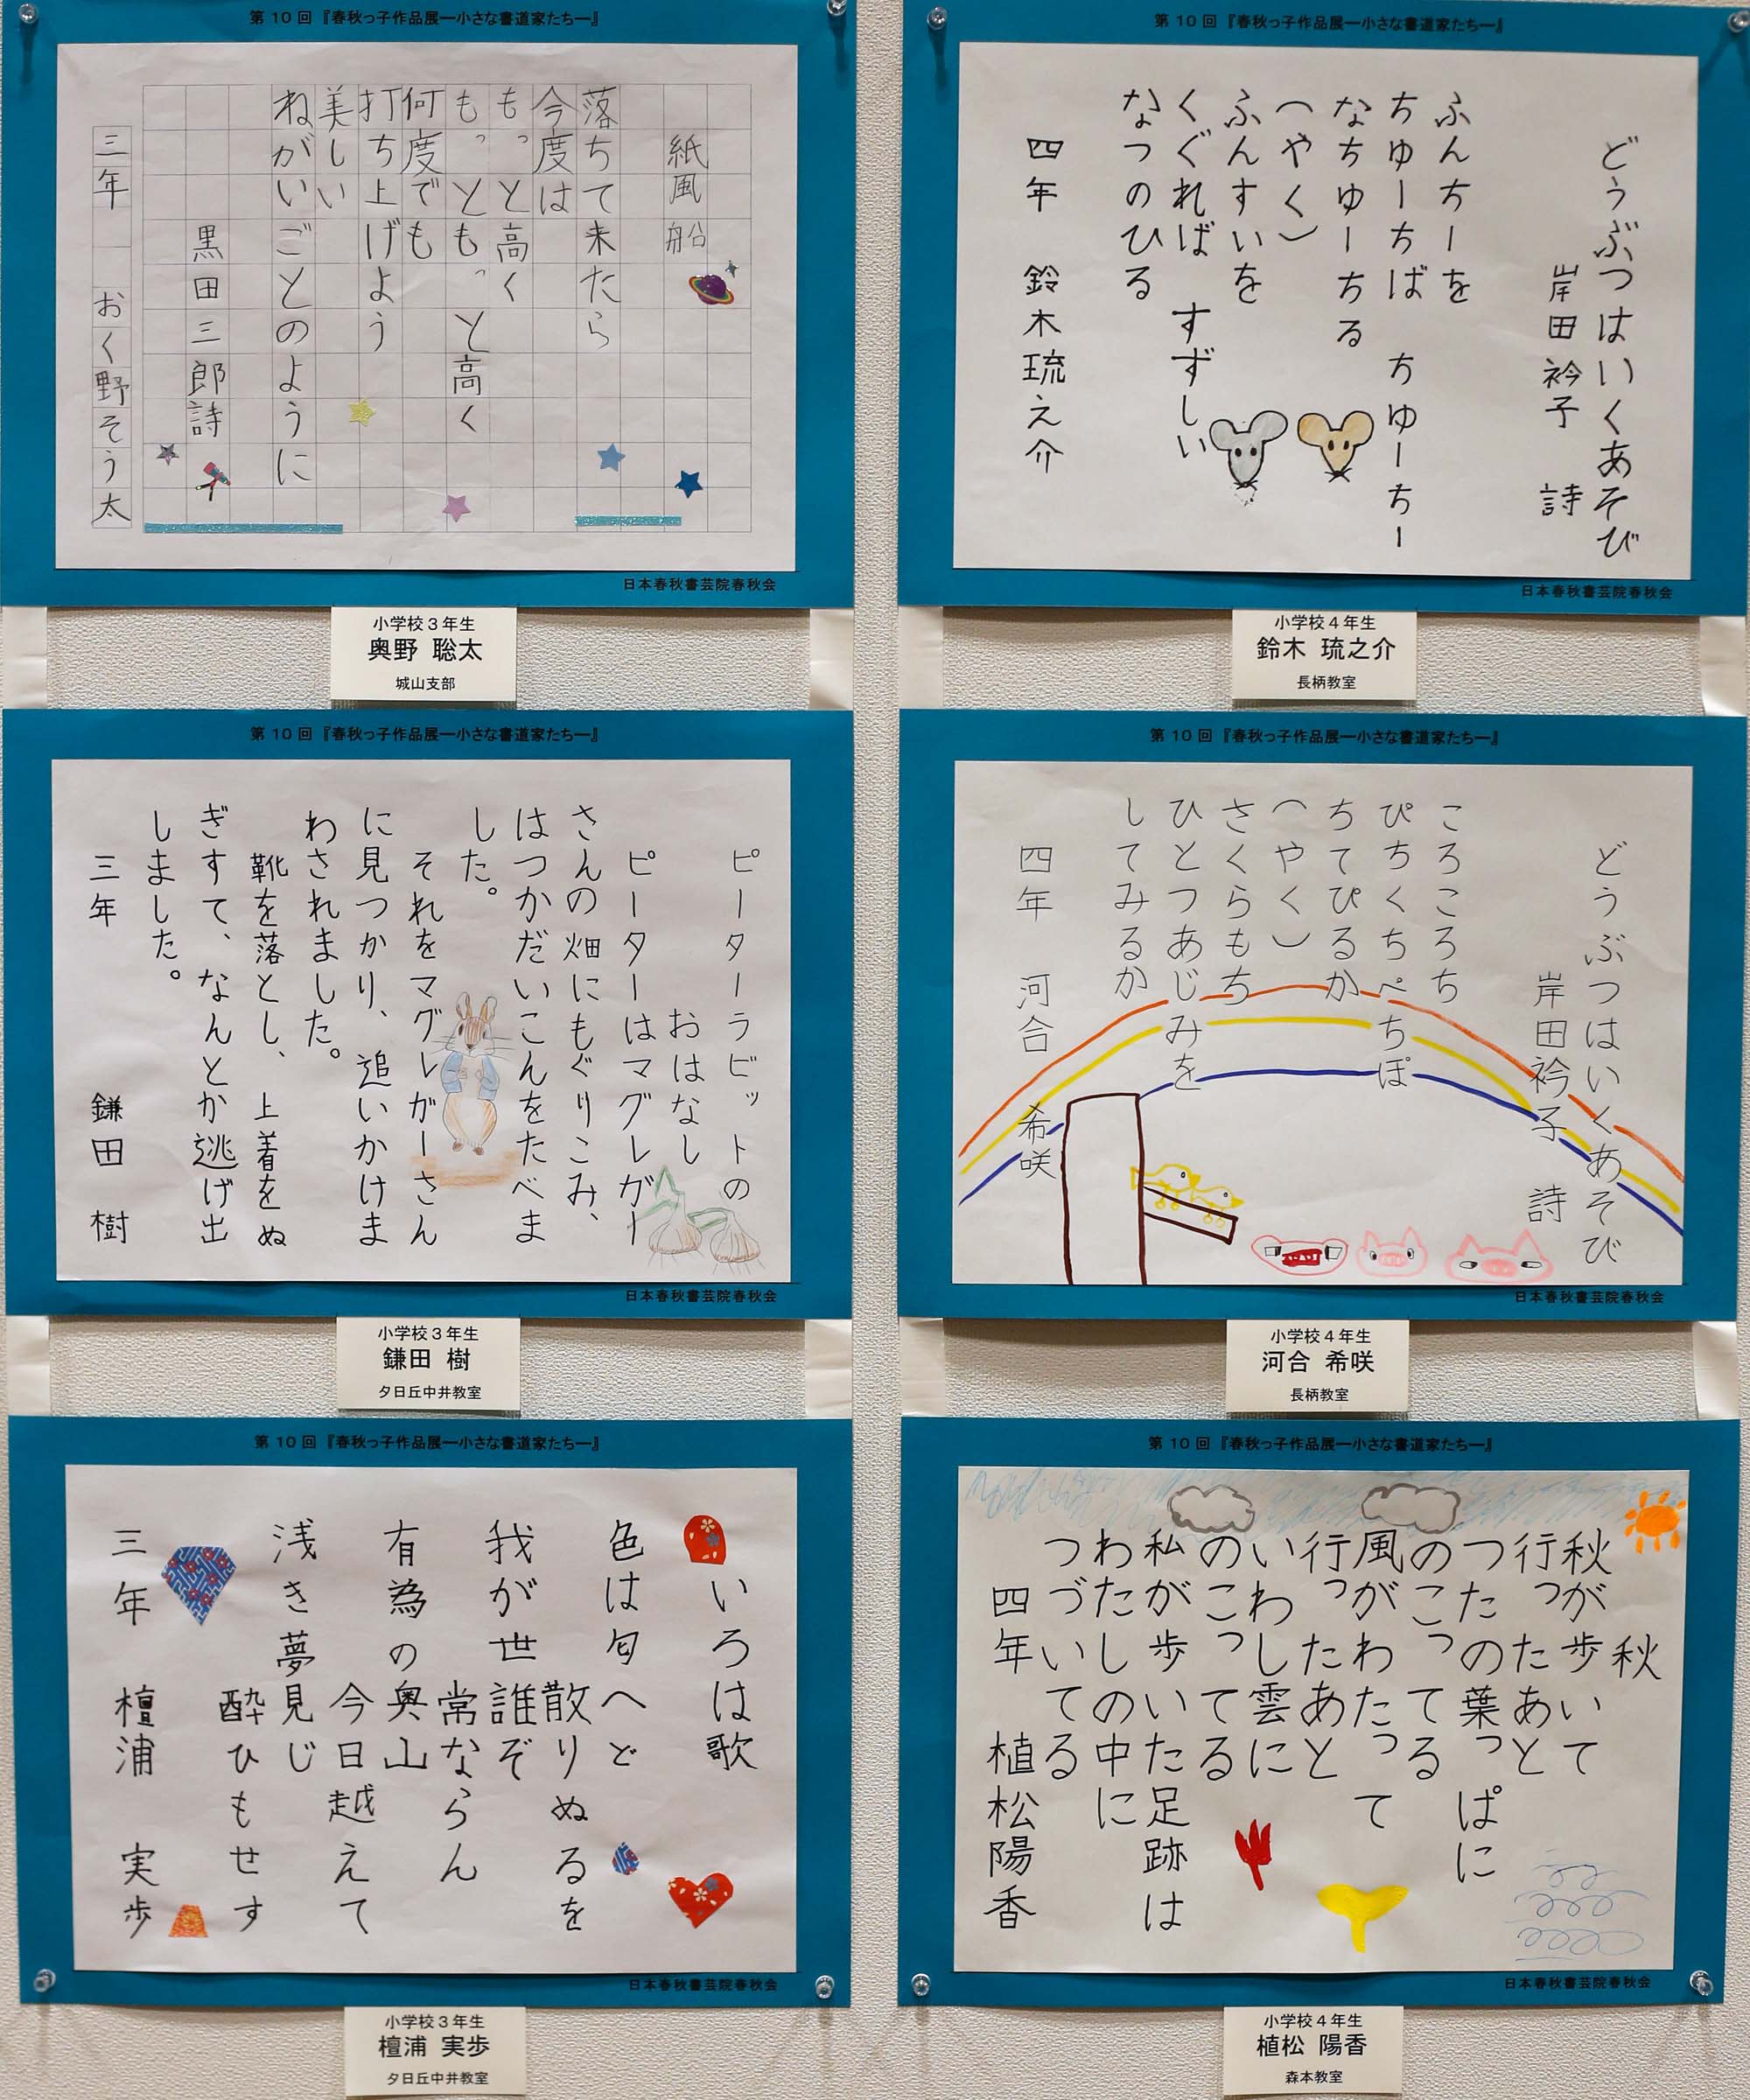 第10回『春秋っ子作品展―小さな書道家たち―』
紙風船
落ちて来たら
今度は
もっと高く
もっともっと高く
何度でも
打ち上げよう
美しい
ねがいごとのように
黒田三郎詩
三年 おく野そう太
日本春秋書芸院春秋会
小学校3年生
奥野 聡太
城山支部
第10回『春秋っ子作品展―小さな書道家たち―』
どうぶつはいくあそび
岸田衿子 詩
ふんちーを
ちゆーちば ちゆーちー
なちゆーちる
(やく)
ふんすいを
くぐれば すずしい
なつのひる
四年 鈴木琉之介
日本春秋書芸院春秋会
小学校4年生
鈴木 琉之介
長柄教室
第10回『春秋っ子作品展―小さな書道家たち―』
ピーターラビットの
おはなし
ピーターはマグレガー
さんの畑にもぐりこみ、
はつかだいこんをたべま
した。
それをマグレガーさん
に見つかり、追いかけま
わされました。
靴を落とし、上着をぬ
ぎすて、なんとか逃げ出
しました。
三年 鎌田 樹
日本春秋書芸院春秋会
小学校3年生
鎌田 樹
夕日丘中井教室
第10回『春秋っ子作品展―小さな書道家たち―』
どうぶつはいくあそび
岸田衿子 詩
ころころち
ぴちくちぺちぽ
ちてぴるか
(やく)
さくらもち
ひとつあじみを
してみるか
四年 河合 希咲
日本春秋書芸院春秋会
小学校4年生
河合 希咲
長柄教室
第10回『春秋っ子作品展―小さな書道家たち―』
いろは歌
色は匂へど
散りぬるを
我が世誰ぞ
常ならん
有為の奥山
今日越えて
浅き夢見じ
酔ひもせす
三年 檀浦 実歩
日本春秋書芸院春秋会
小学校3年生
檀浦 実歩
夕日丘中井教室
第10回『春秋っ子作品展―小さな書道家たち―』
秋
秋が歩いて
行ったあと
つたの葉っぱに
のこってる
風がわたって
行ったあと
いわし雲に
のこってる
私が歩いたた足跡は
わたしの中に
つづいてる
四年 植松陽香
日本春秋書芸院春秋会
小学校4年生
植松 陽香
森本教室